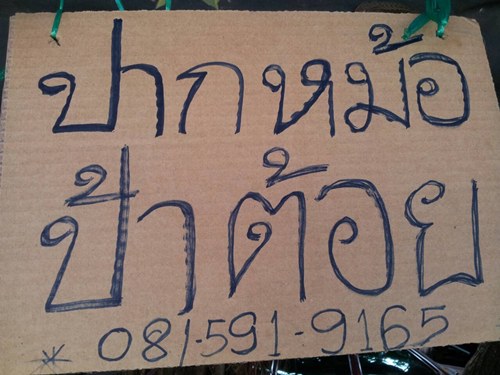 ปากหม้อ
ป้าต้อย
* 081-591-9165